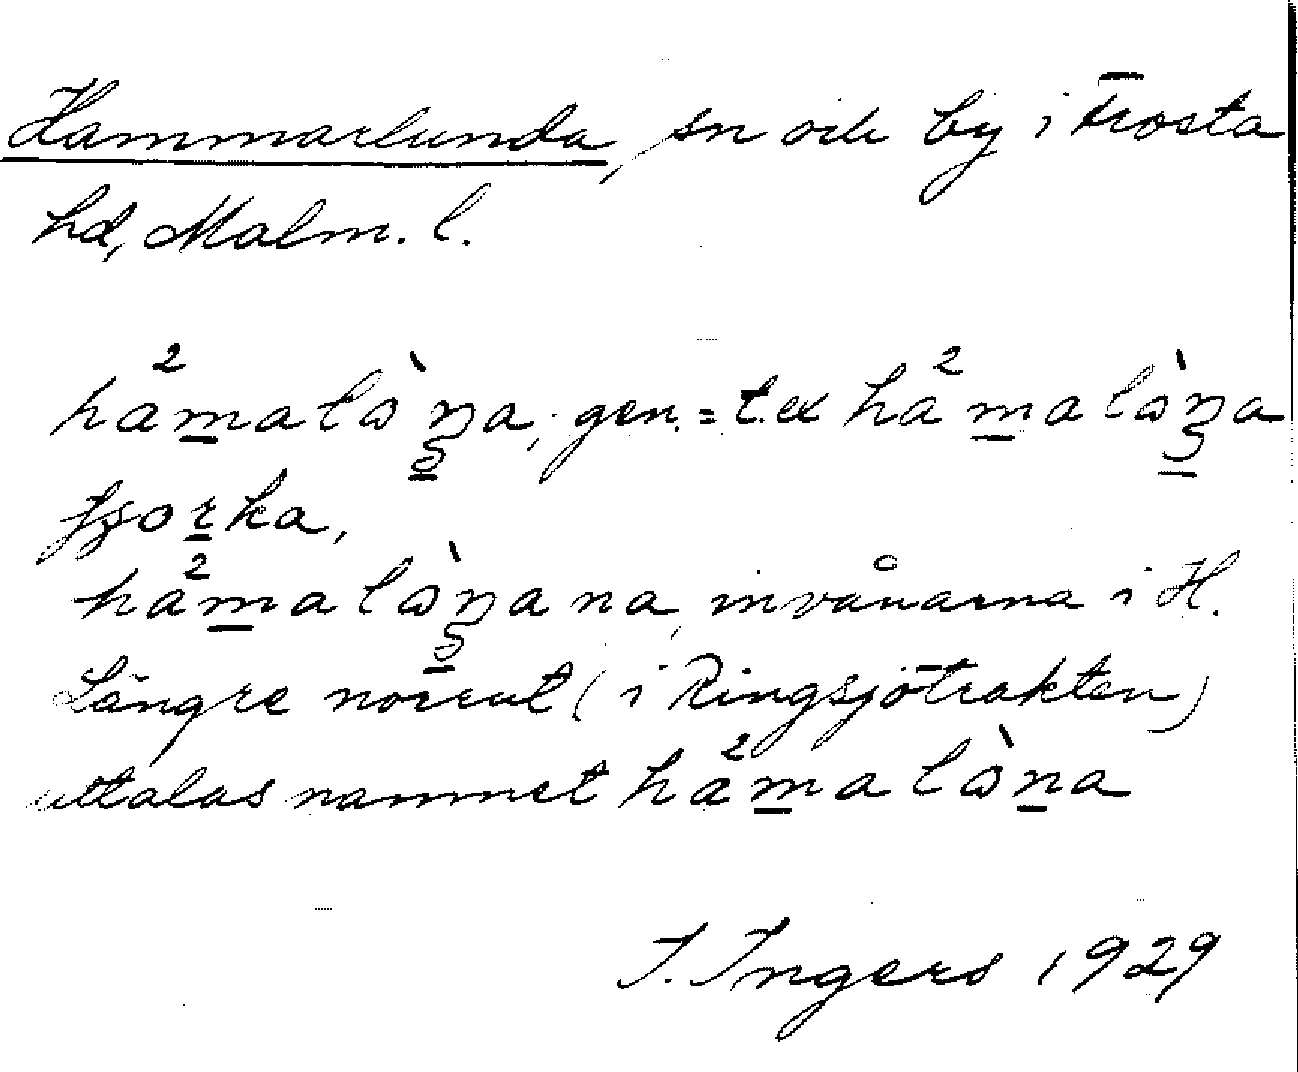 Hammarlunda, sn och by i Frosta
hd, Malm. l.
hå²malὼn̠a, gen. = t.ex hå²malὼn̠a
tjor̠ka,
hå²malὼn̠ana, invånarna i H.
Längre norrut (i Ringsjötrakten)
uttalas namnet hå²m̠alὼn̠a
I. Ingers 1929